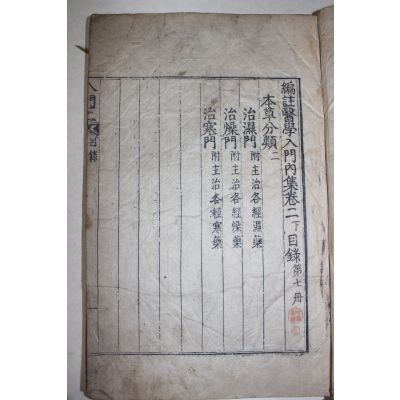 編註醫學入門內集卷二下目錄 第七冊
本草分類二
治濕門 附主治各經濕藥
治燥門 附主治各經燥藥
治寒門 附主治各經寒藥
入門 目錄